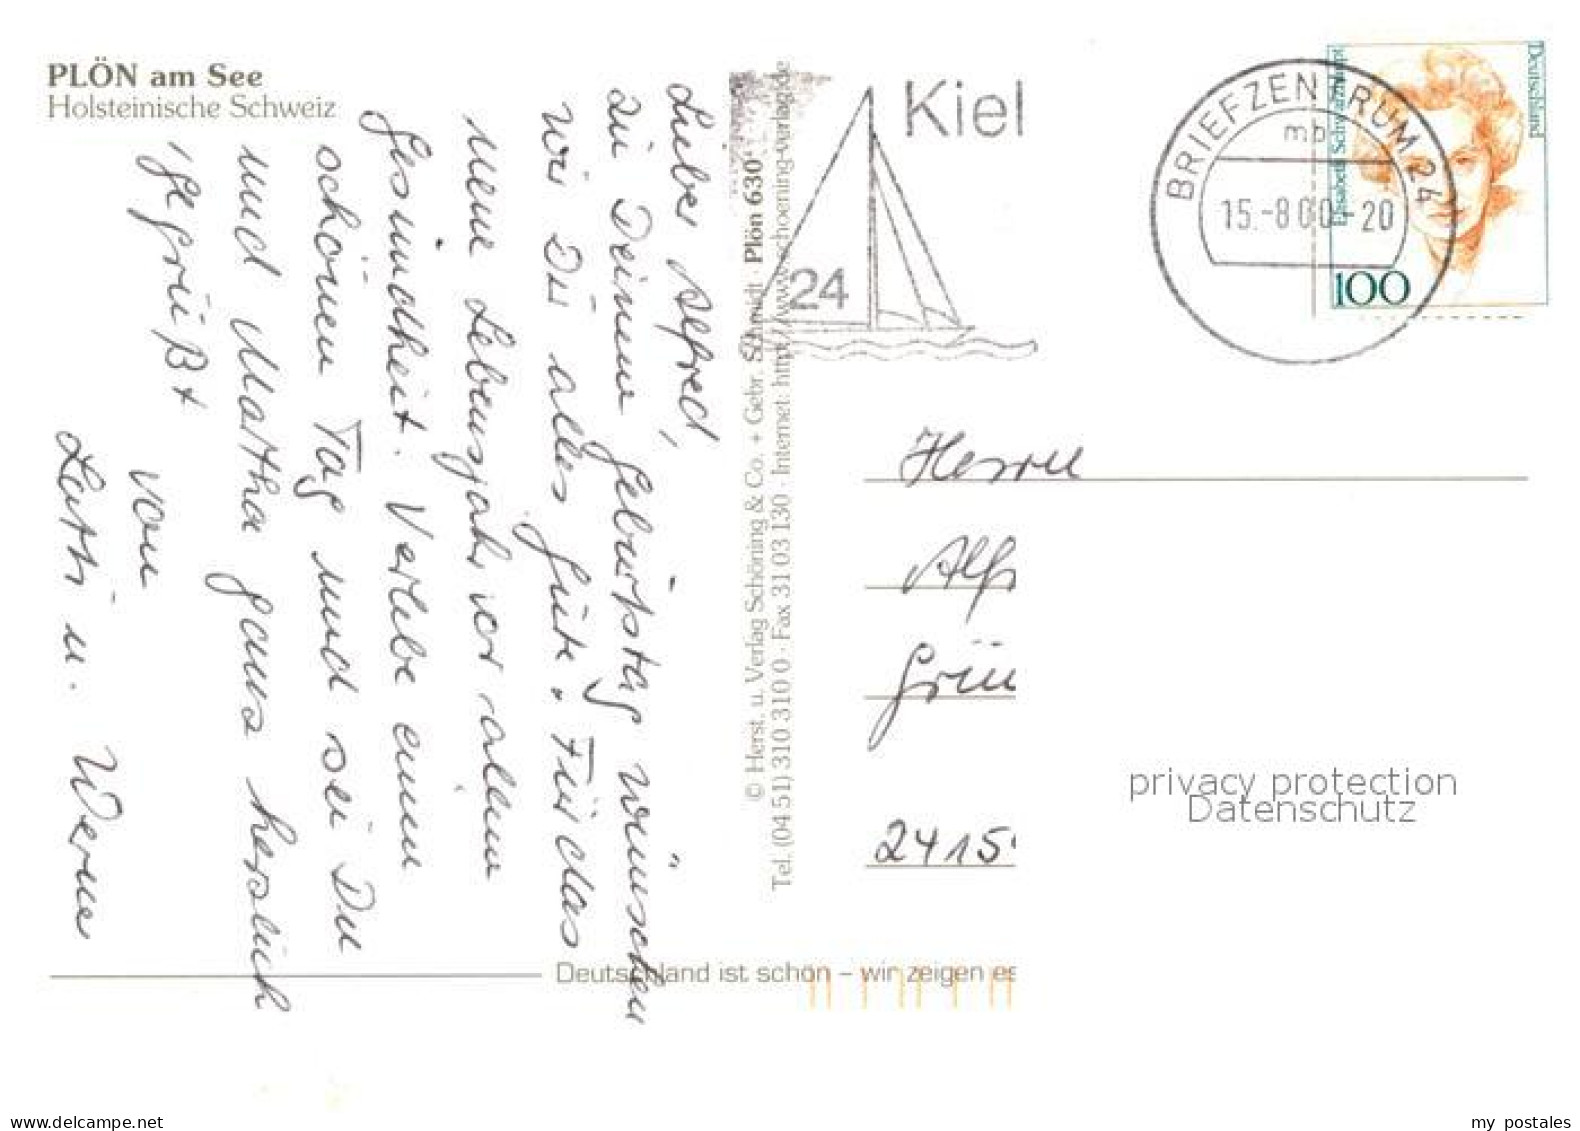 PLÖN am See
Holsteinische Schweiz
Lieber Alfred,
zu Deinem Geburtstag wünschen
wir Dir alles Gute. Für das
neue Lebensjahr vor allem
Gesundheit. Verlebe einen
schönen Tag und sei Du
und Martha ganz herzlich
gegrüßt
von
u. Werner
© Herst. u. Verlag Schöning & Co. + Gebr. Schmidt · Plön 630
Tel. (04 51) 310 310 0 · Fax 31 03 130 · Internet: http://www.schoening-verlag.de
Kiel
24
BRIEFZENTRUM 24
mb
15.-8.00-20
Deutschland
Elisabeth Schwarzhaupt
100
Herrn
Alf
Grün
2415
privacy protection
Datenschutz
Deutschland ist schön – wir zeigen es
www.delcampe.net
my postales